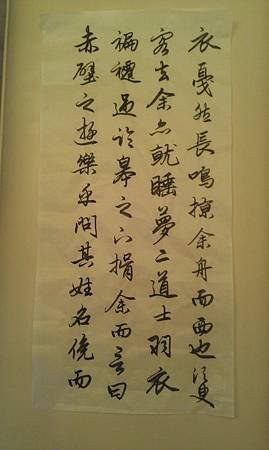 衣戛然長鳴掠余舟而西也須臾
客去余亦就睡夢二道士羽衣
蹁躚過臨皋之下揖余而言曰
赤壁之遊樂乎問其姓名俛而